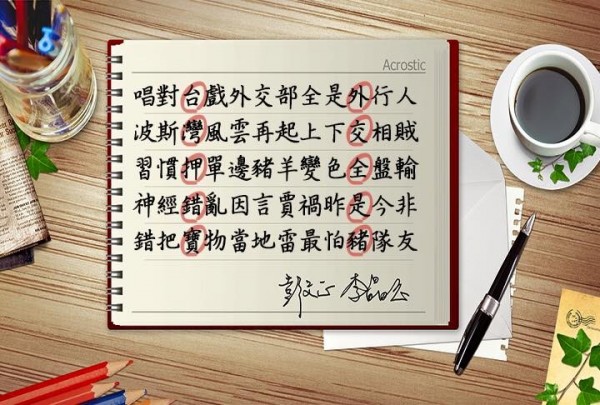 Acrostic
唱對台戲外交部全是外行人
波斯灣風雲再起上下交相賊
習慣押單邊豬羊變色全盤輸
神經錯亂因言賈禍昨是今非
錯把寶物當地雷最怕豬隊友
彭文正 李晶玉